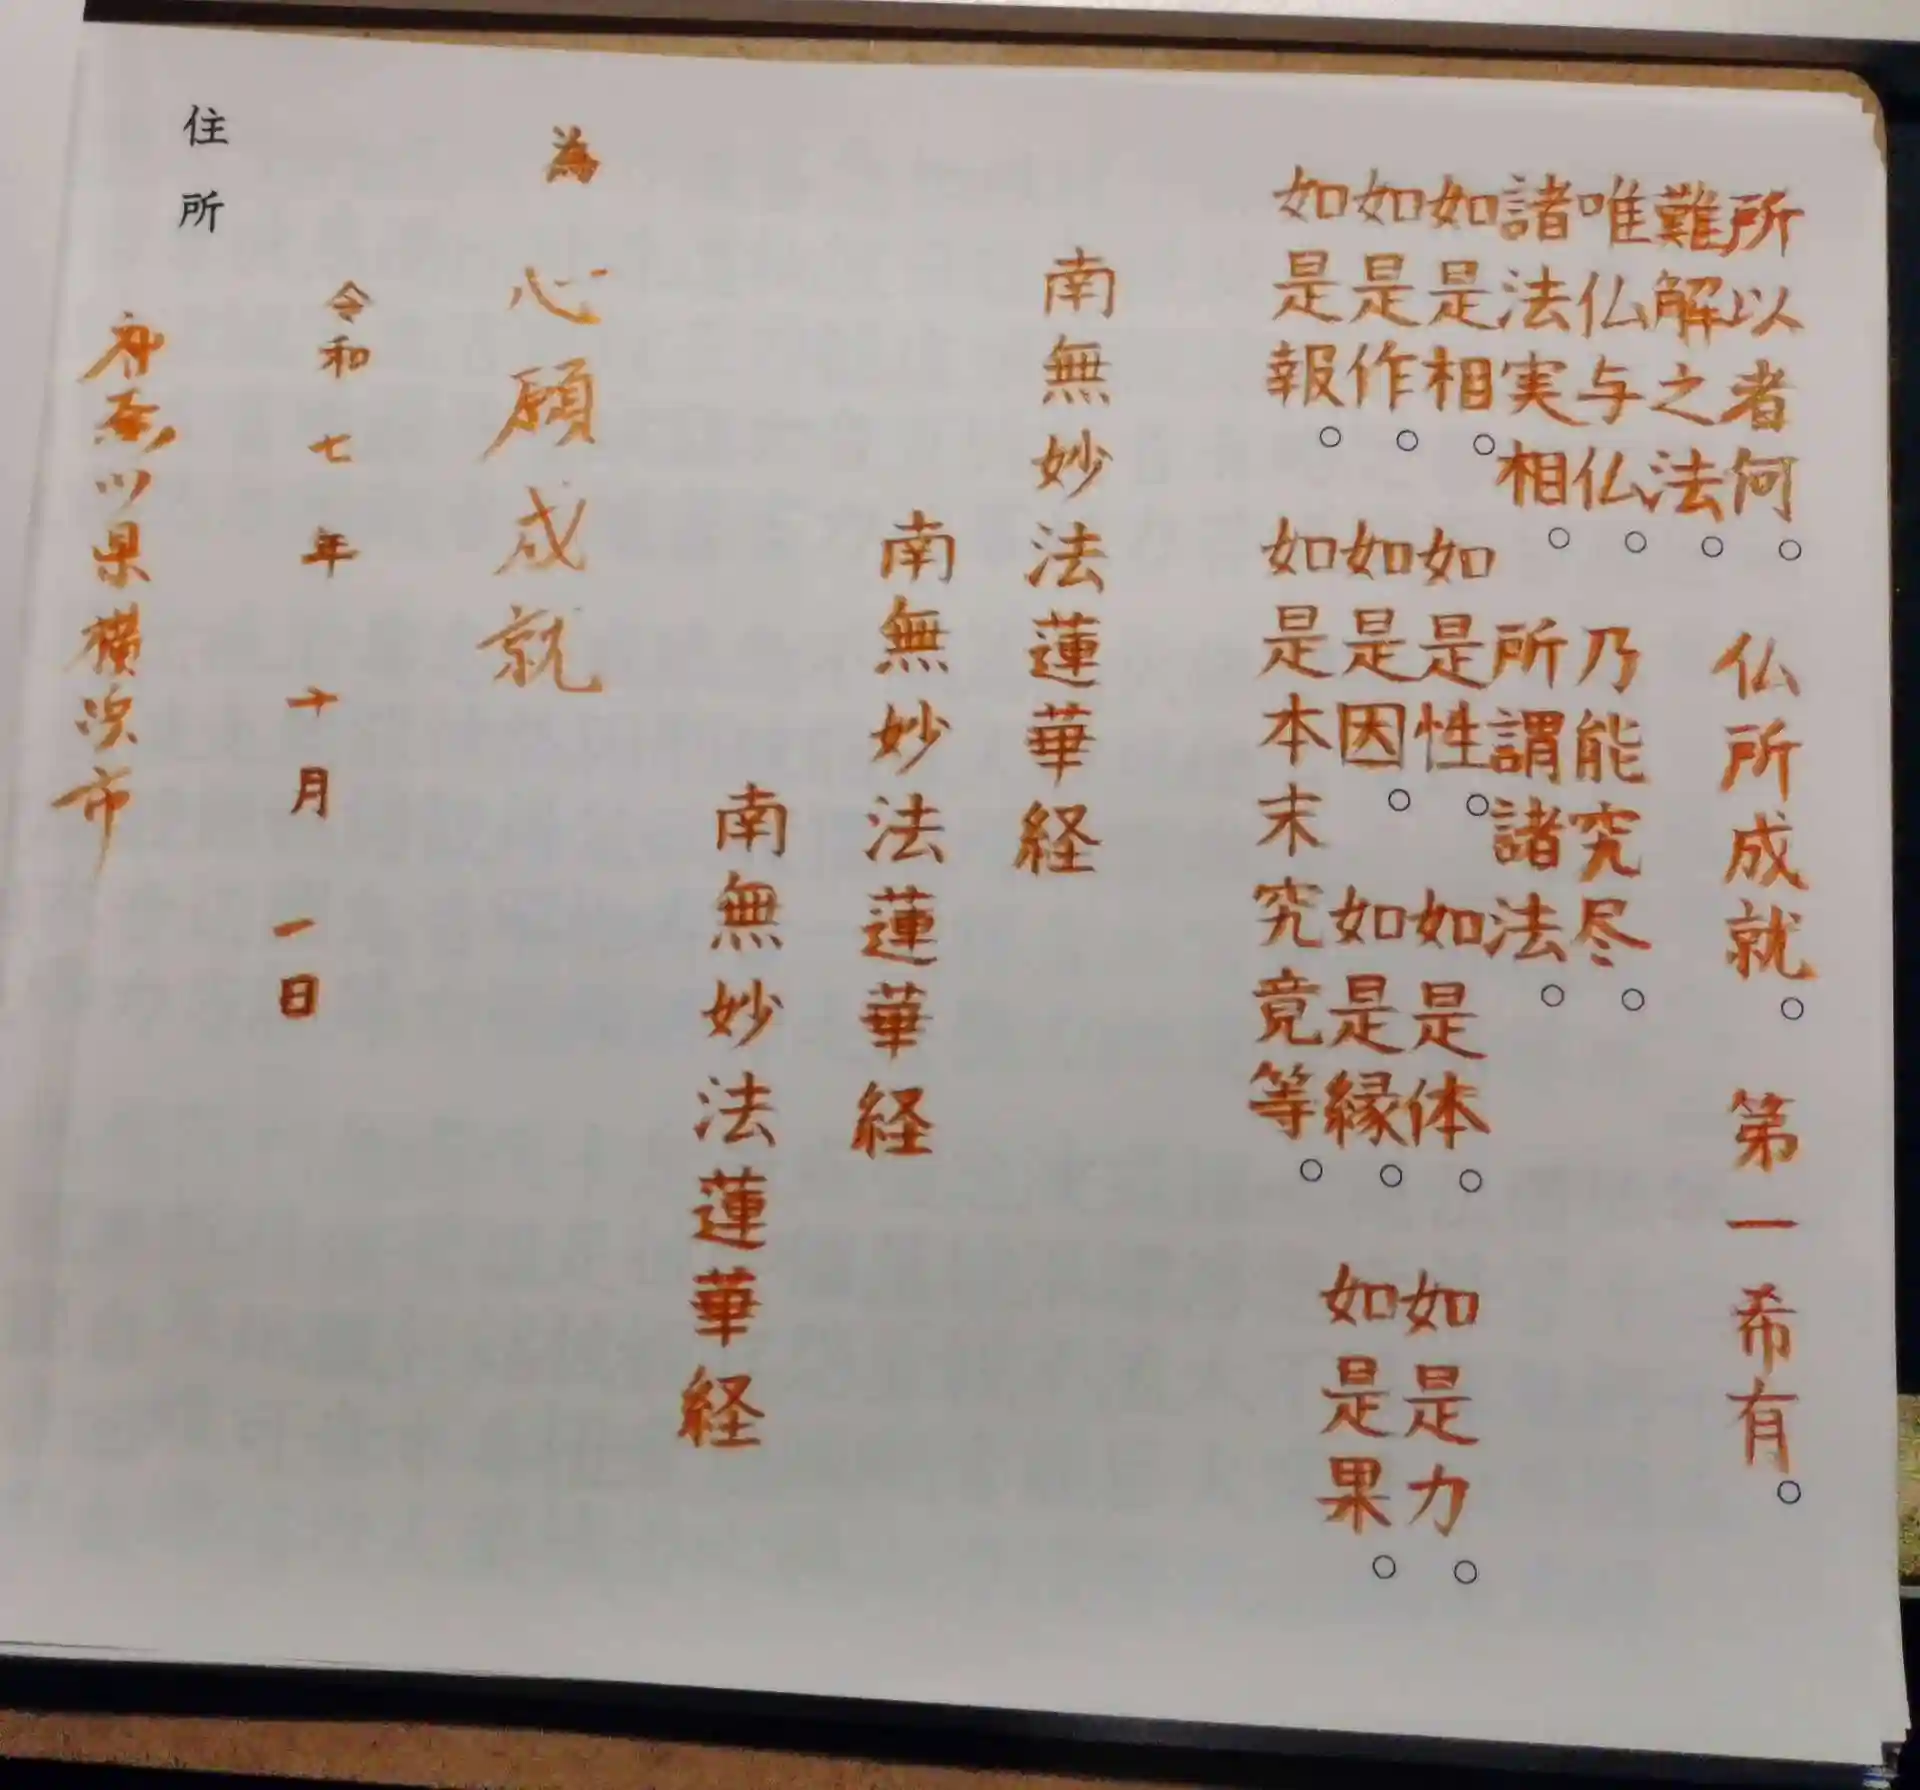 所以者何。 仏所成就。 第一希有。
難解之法。
唯仏与仏。 乃能究尽。
諸法実相。 所謂諸法。
如是相。 如是性。 如是体。 如是力。
如是作。 如是因。 如是縁。 如是果。
如是報。 如是本末究竟等。
南無妙法蓮華経
南無妙法蓮華経
南無妙法蓮華経
為 心願成就
令和七年 十月 一日
住所
神奈川県横浜市